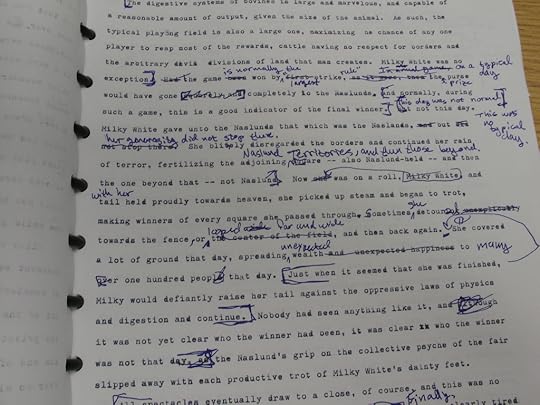 The digestive systems of bovines is large and marvelous, and capable of
a reasonable amount of output, given the size of the animal. As such, the
typical playing field is also a large one, maximizing he chance of any one
player to reap most of the rewards, cattle having no respect for borders and
the arbitrary david divisions of land that man creates. Milky White was no
is normally the rule on a typical day
exception. Had the game won by, first strike, the purse
largest prize
would have gone completely to the Naslunds. and normally, during
such a game, this is a good indicator of the final winner. but not this day.
This day was not normal
This was no typical day.
Milky White gave unto the Naslunds that which was the Naslunds, and out
her generosity did not stop there.
not stop there. She blissly disregarded the borders and continued her rain
Naslund Territories, and then those beyond.
of terror, fertilizing the adjoining square -- also Naslund-held -- and then
the one beyond that -- not Naslund. Now she was on a roll, Milky White, and
with her
tail held proudly towards heaven, she picked up steam and began to trot,
she
making winners of every square she passed through. Sometimes detoured
looped far and wide
towards the fence, or to the center of the field, and then back again. She covered
unexpected many
a lot of ground that day, spreading wealth and unexpected happiness to
over one hundred people that day. Just when it seemed that she was finished,
Milky would defiantly raise her tail against the oppressive laws of physics
and digestion and continue. Nobody had seen anything like it, and although
it was not yet clear who the winner had been, it was clear who the winner
was not that day, as the Naslund's grip on the collective psyche of the fair
slipped away with each productive trot of Milky White's dainty feet.
Finally,
All spectacles eventually draw to a close, of course, and this was no
clearly tired